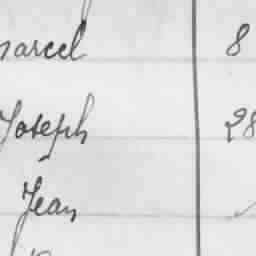 Marcel 8
Joseph 28
Jean